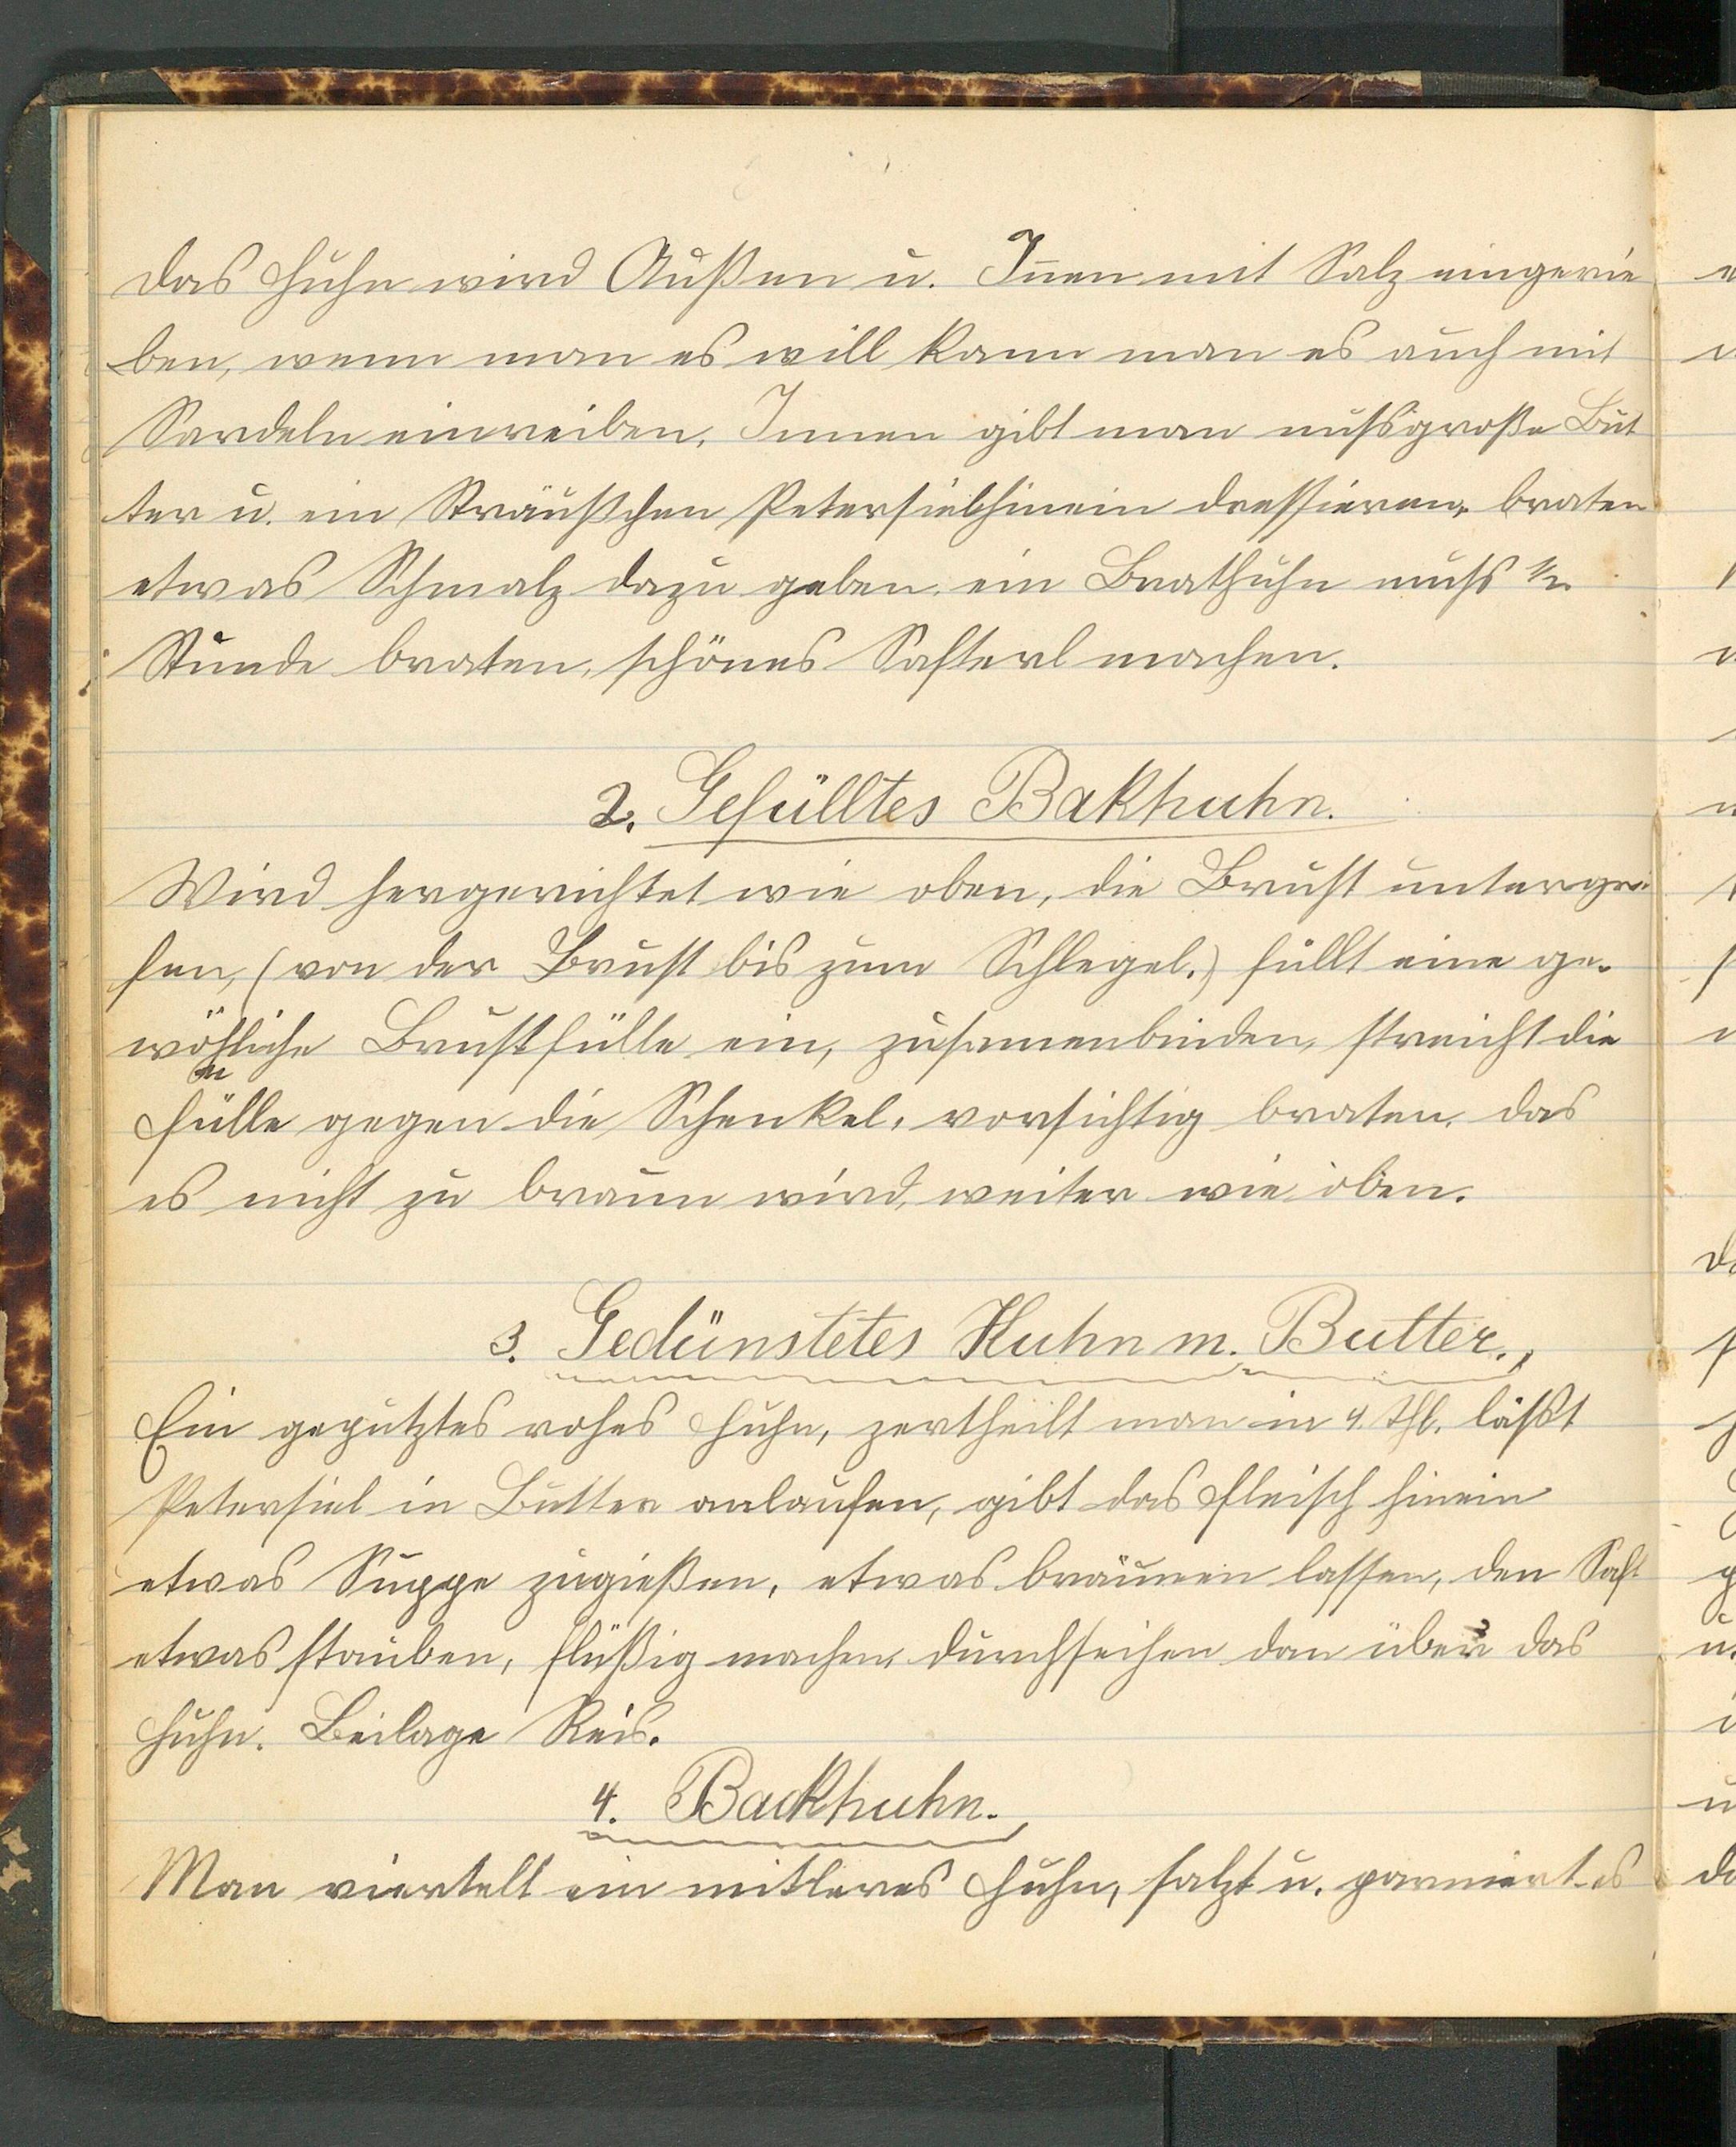 Das Huhn wird Außen u. Iñen mit Salz eingerie
ben, wenn man es will kann man es auch mit
Sardeln einreiben. Innen gibt man nußgroße But
ter u. ein Sträußchen Petersiel hinein dressieren, braten
etwas Schmalz dazu geben, ein Brathuhn muß ½
Stunde braten, schönes Safterl machen.
2. Gefülltes Bakhuhn.
Wird hergerichtet wie oben, die Brust untergrei
fen, (von der Brust bis zum Schlegel.) füllt eine ge-
wöhnliche Brustfülle ein, zusamenbinden, streicht die
Fülle gegen die Schenkel, vorsichtig braten, das
es nicht zu braun wird, weiter wie oben.
3. Gedünstetes Huhn m. Butter.
Ein geputztes rohes Huhn, zertheilt man in 4. Thl. läßt
Petersiel in Butter anlaufen, gibt das Fleisch hinein
etwas Suppe zugießen, etwas bräunen lassen, den Saft
etwas stauben, flüßig machen durchseihen dan über das
Huhn. Beilage Reis.
4. Backhuhn.
Man viertelt ein mitleres Huhn, salzt u. panniert es